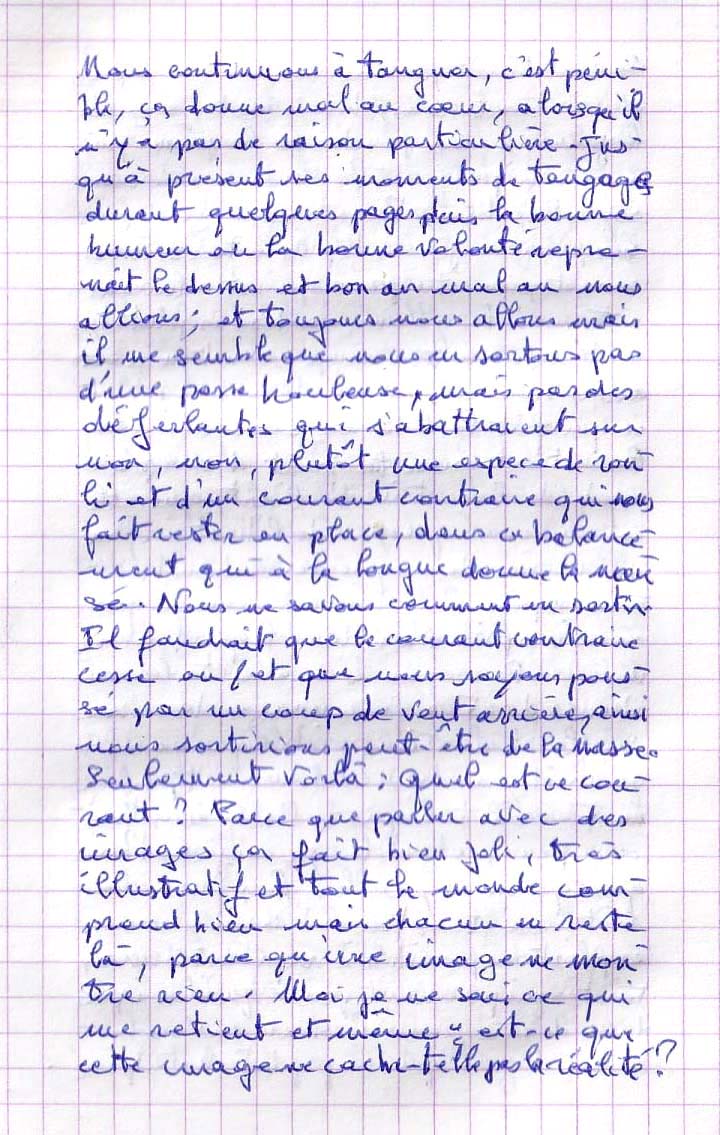 Nous continuons à tanguer, c'est péni-
ble, ça donne mal au cœur, alors qu'il
n'y a pas de raison particulière. Jus-
qu'à présent ces moments de tangage
durent quelques pages puis la bonne
humeur ou la bonne volonté repre-
nait le dessus et bon an mal an nous
allions ; et toujours nous allons mais
il me semble que nous ne sortons pas
d'une passe houleuse, mais pas des
déferlantes qui s'abattraient sur
nous, non, plutôt une espèce de rou-
li et d'un courant contraire qui nous
fait rester en place, dans ce balance-
ment qui à la longue donne la nau-
sé. Nous ne savons comment en sortir.
Il faudrait que le courant contraire
cesse ou / et que nous soyons pous-
sé par un coup de vent arrière, ainsi
nous sortirions peut-être de la nasse.
Seulement voilà ; quel est ce cou-
rant ? Parce que parler avec des
images ça fait bien joli, très
illustratif et tout le monde com-
prend bien mais chacun en reste
là, parce qu'une image ne mon-
tre rien. Moi je ne sais ce qui
me retient et même : est-ce que
cette image ne cache-t-elle pas la réalité ?